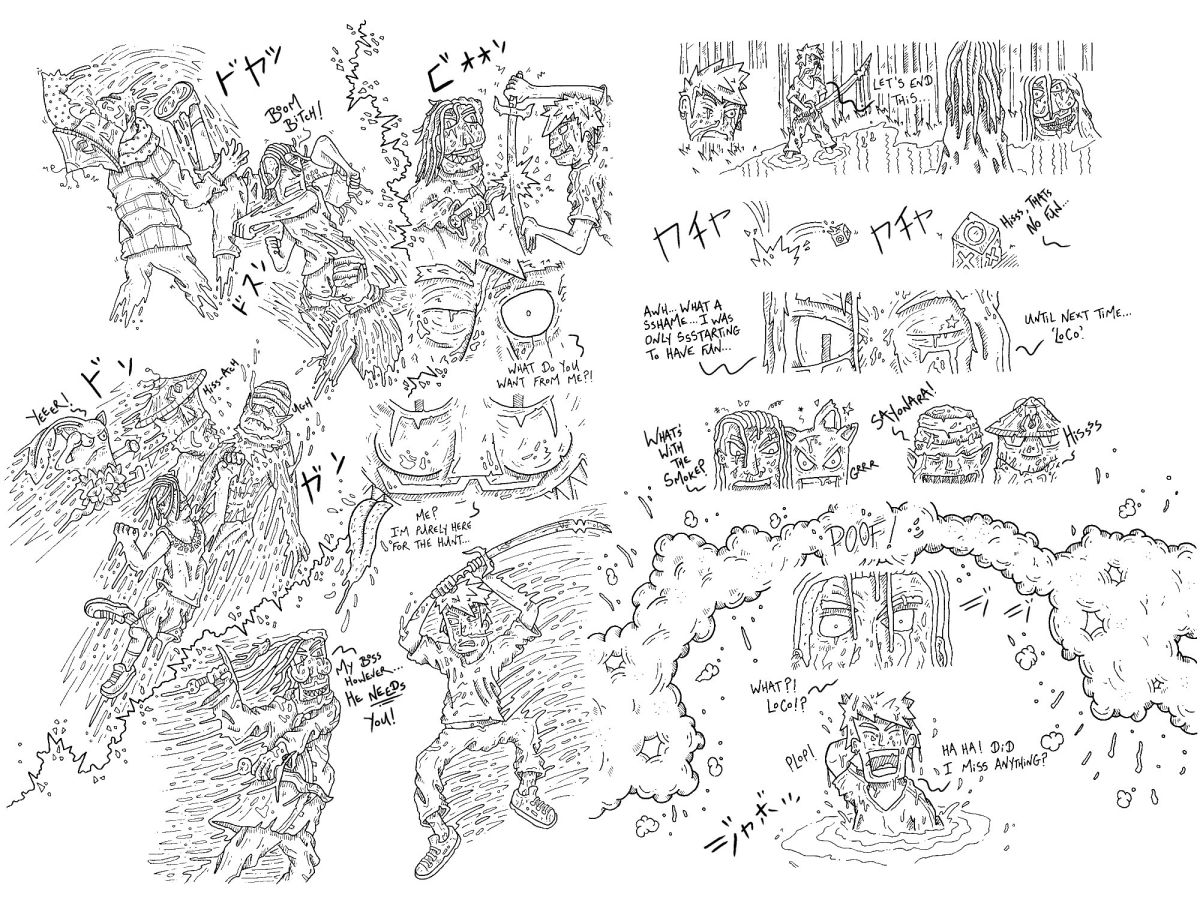 ドヤッ
BOOM
BITCH!
ビォォッ
ドスッ
YEEER!
ドッ
HISS-ACH
UGH
ガッ
WHAT DO YOU
WANT FROM ME?!
ME?
I'M PURELY HERE
FOR THE HUNT...
MY BOSS
HOWEVER...
HE NEEDS
YOU!
LET'S END
THIS...
カチャ
カチャ
HISSS. THATS
NO FUN...
AWH... WHAT A
SSHAME... I WAS
ONLY SSSTARTING
TO HAVE FUN...
UNTIL NEXT TIME...
'LOCO'.
WHAT'S
WITH
THE
SMOKE?
GRRR
SAYONARA!
HISSSS
POOF!
WHAT?!
LOCO!?
PLOP!
HA HA! DID
I MISS ANYTHING?
ジャボッ